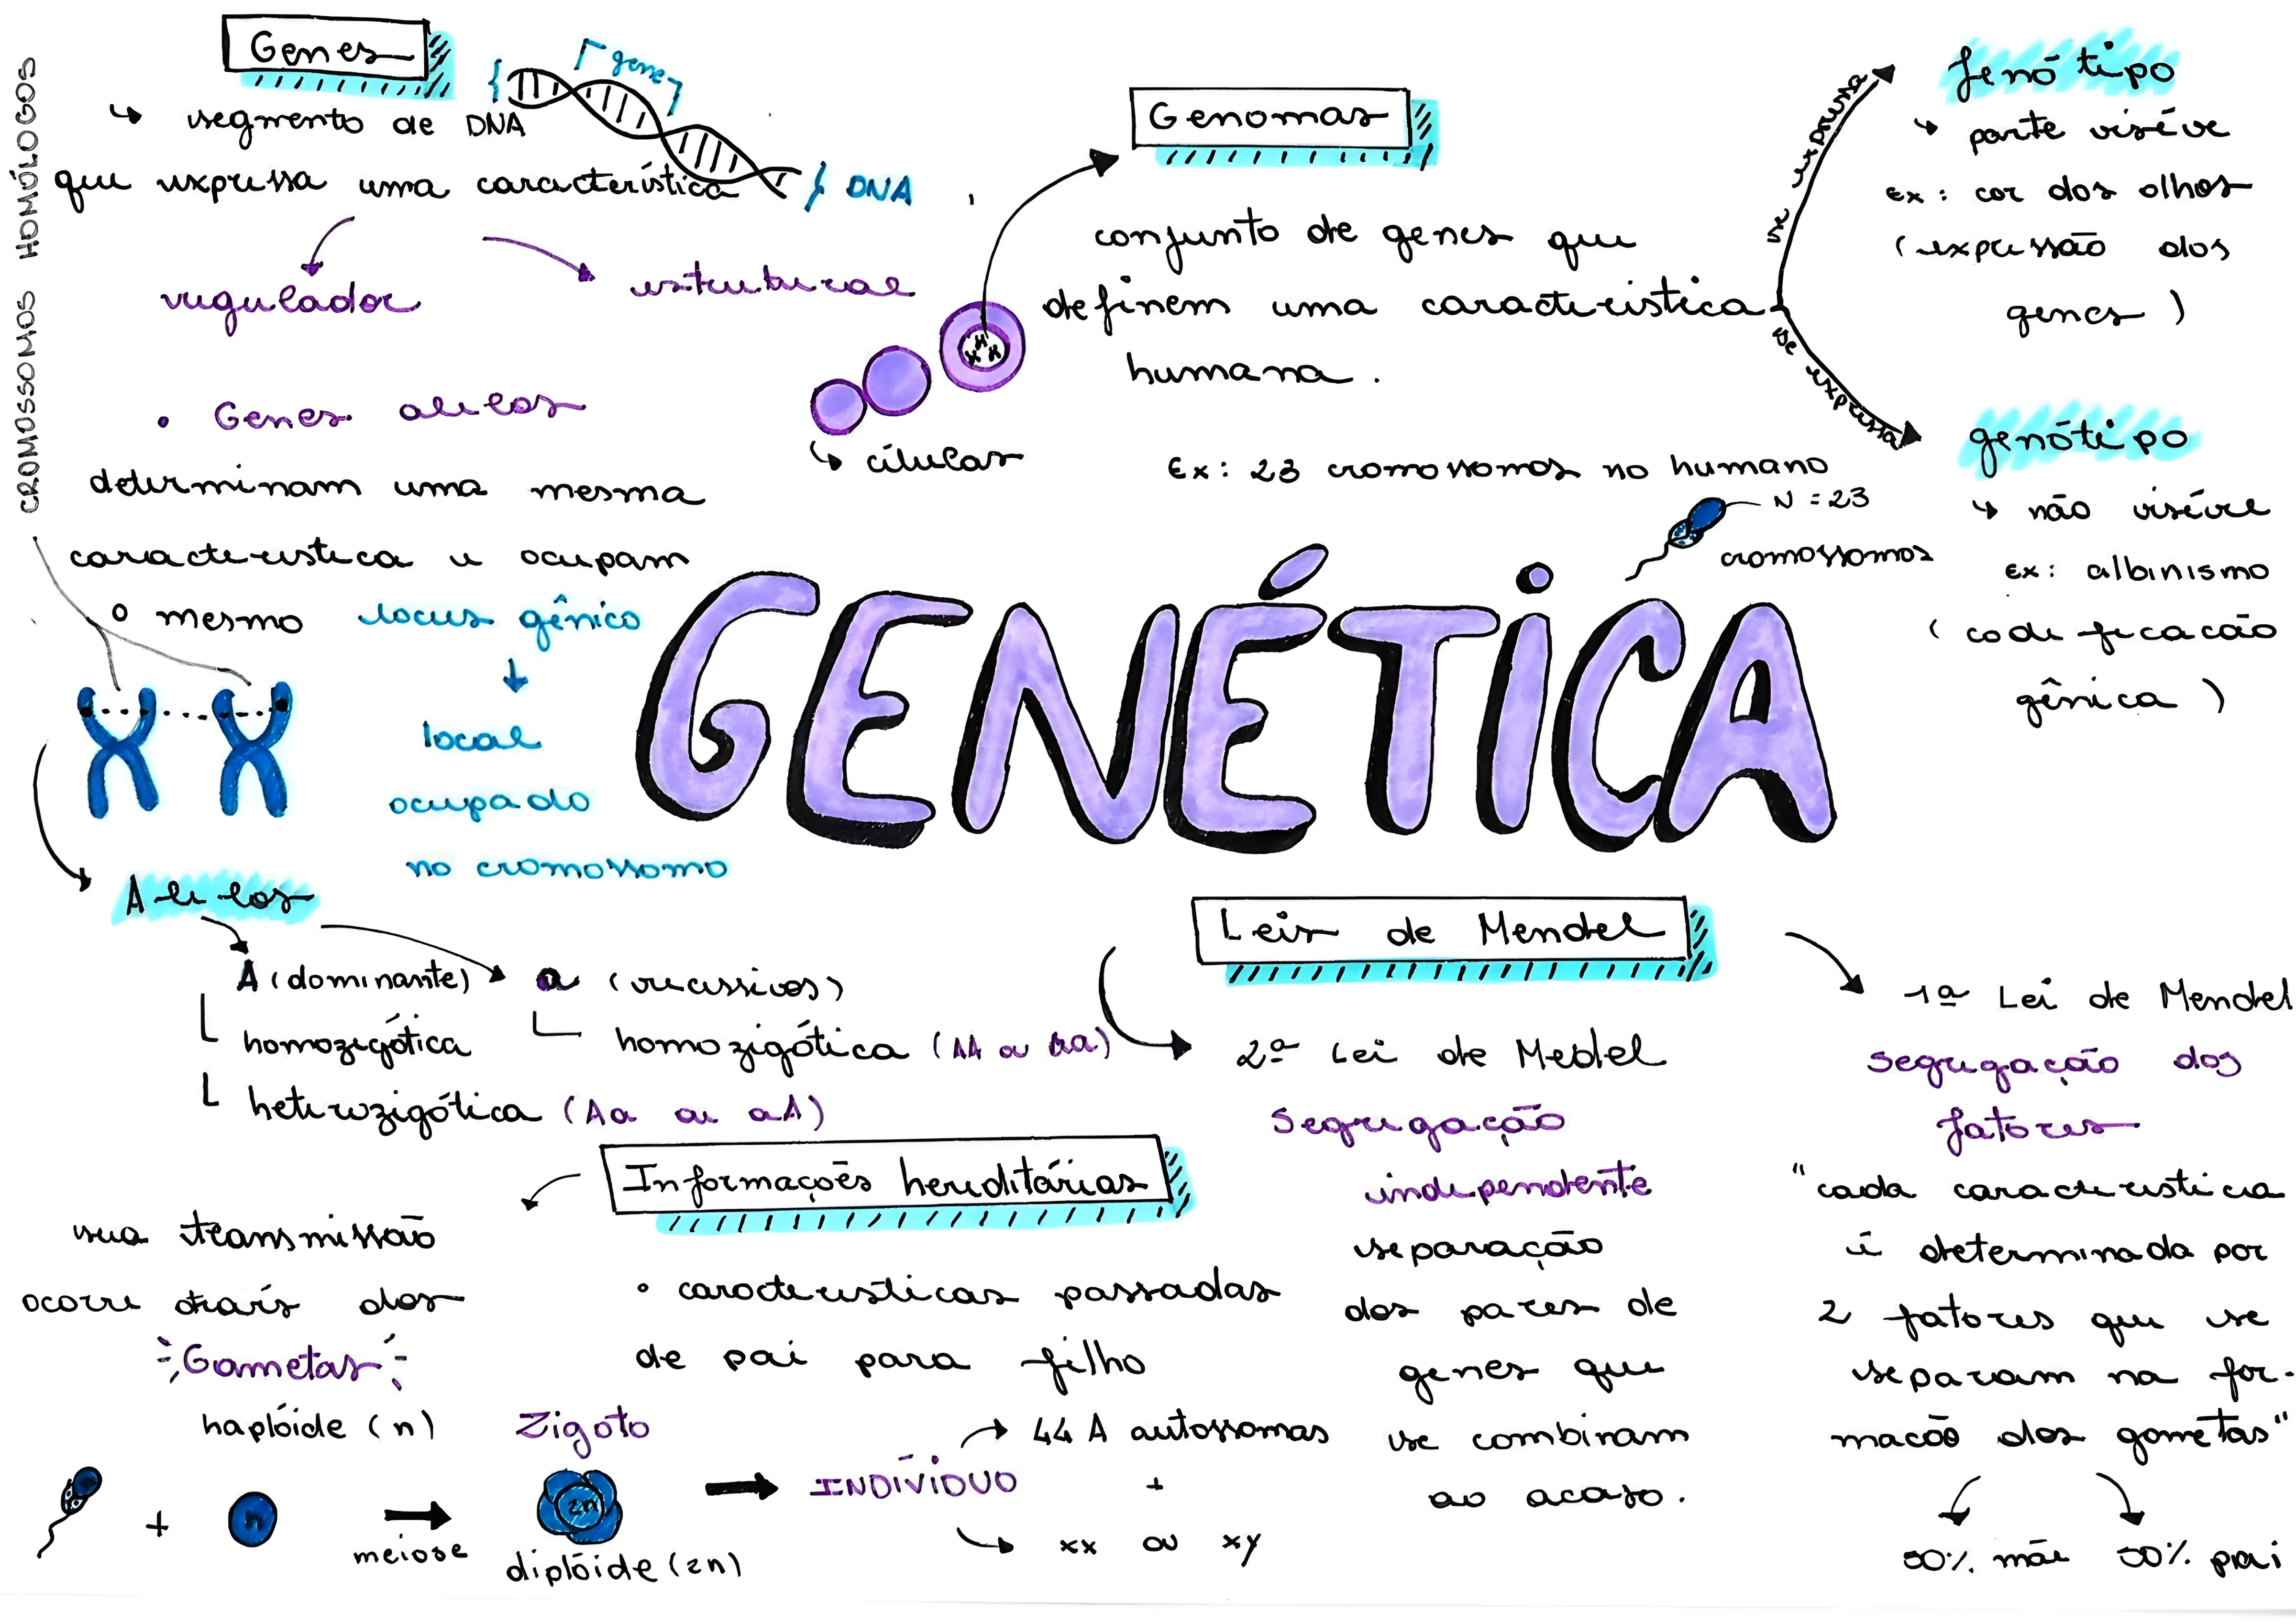 CROMOSSOMOS HOMÓLOGOS
Genes
↳ segmento de DNA
que expressa uma característica
gene
DNA
regulador
estrutural
• Genes alelos
determinam uma mesma
característica e ocupam
o mesmo locus gênico
local
ocupado
no cromossomo
Genomas
conjunto de genes que
definem uma característica
humana.
↳ células
Ex: 23 cromossomos no humano
N = 23
cromossomos
se expressa
fenótipo
↳ parte visível
Ex: cor dos olhos
(expressão dos
genes)
se expressa
genótipo
↳ não visível
Ex: albinismo
(codificacão
gênica)
GENÉTICA
Alelos
A (dominante)
homozigótica
heterozigótica (Aa ou aA)
a (recessivos)
homozigótica (AA ou aa)
Leis de Mendel
2ª Lei de Medel
Segregação
independente
separação
dos pares de
genes que
se combinam
ao acaso.
1ª Lei de Mendel
segregação dos
fatores
"cada característica
é determinada por
2 fatores que se
separam na for-
macão dos gametas"
50% mãe
50% pai
Informações hereditárias
sua transmissão
ocorre atraís dos
Gametas
haplóide (n)
• características passadas
de pai para filho
+
n
meiose
Zigoto
2n
diplóide (2n)
INDÍVIDUO
44 A autossomas
+
xx ou xy